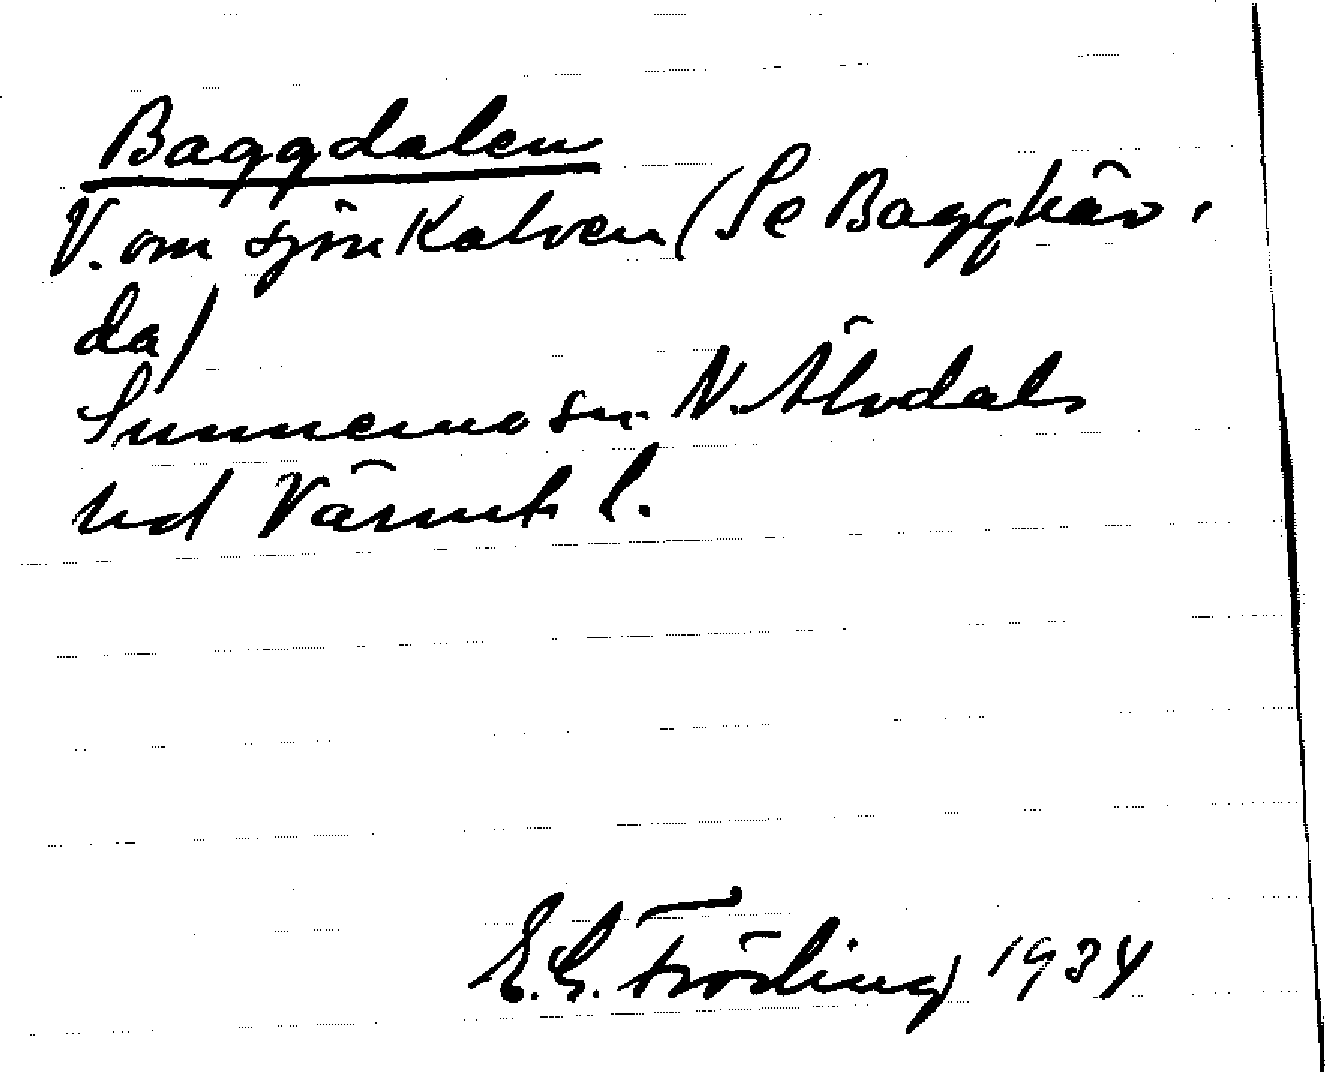 Baggdalen
V. om sjön Kalven (Se Bagghär-
da)
Sunnemo sn. N. Älvdals
hd Värml.
E. G. Fröding 1934